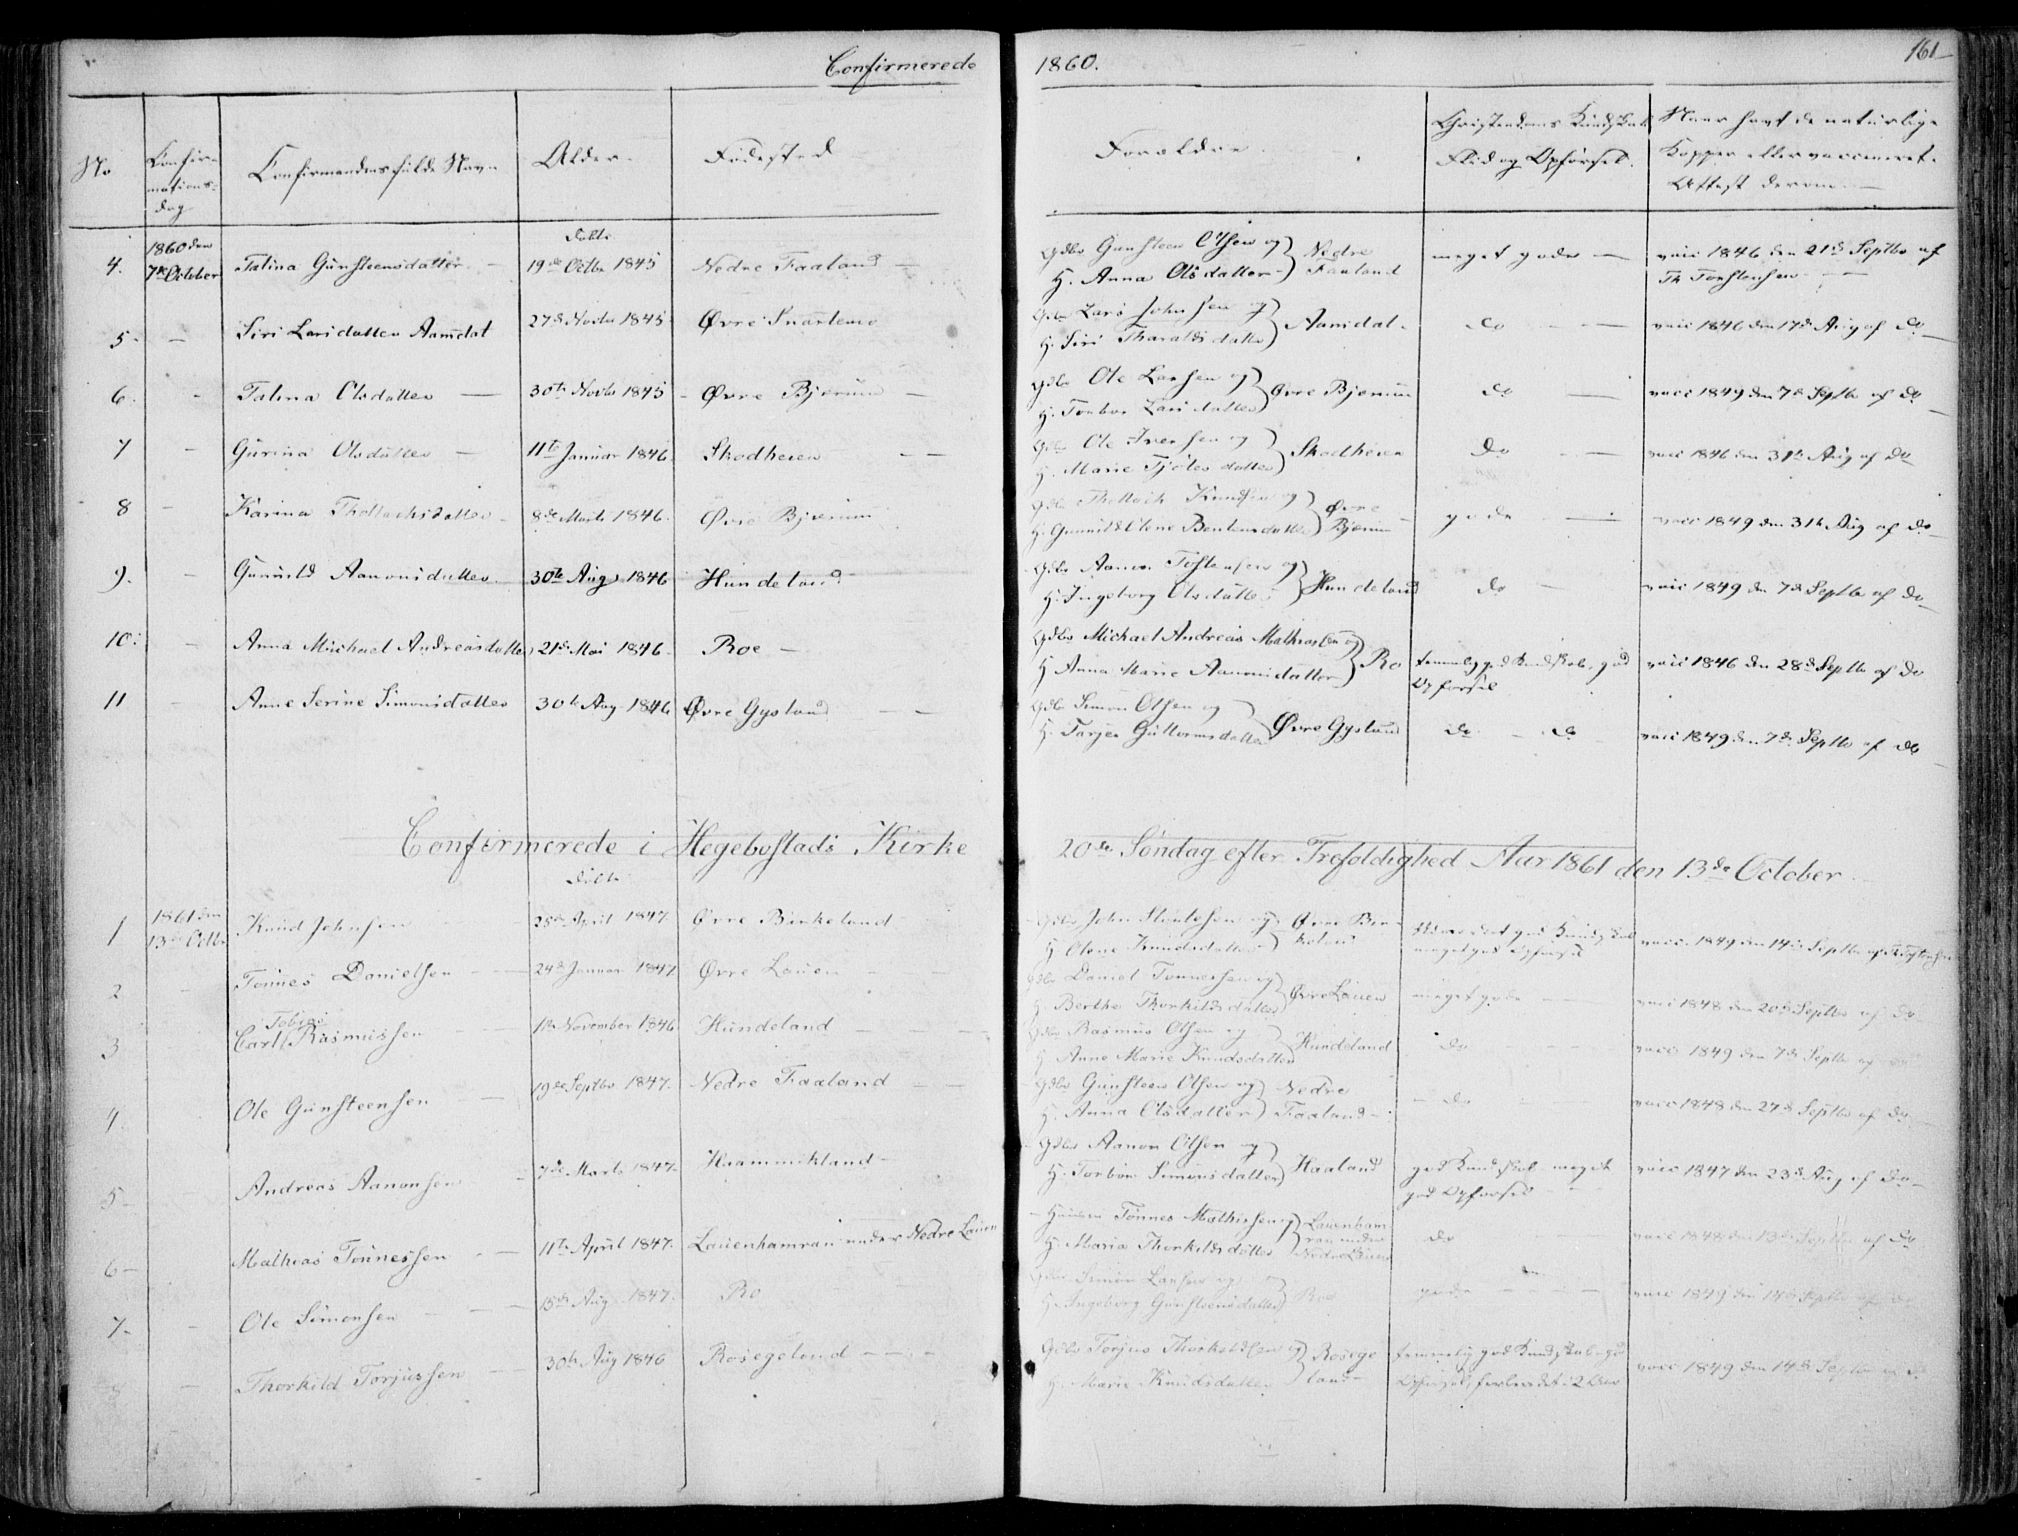 Confirmerede 1860.
161
No
Confirmations-dag
Confirmandens fulde Navn
Alder
Fødested
Forældre
Christendoms Kundskab Flid og Opførsel.
Naar havt de naturlige Kopper eller vaccineret. Attest derom.
4. 1860 den 7de October Talina Gunsteensdatter 19de Octbr 1845 Nedre Faaland Gdbr Gunsteen Olsen og H. Anna Olsdatter Nedre Faaland meget gode vacc 1846 den 21de Septbr af Th Torstensen
5. Siri Larsdatter Aamdal 27de Novbr 1845 Øvre Snartemo Gdbr Lars Johnsen og H. Siri Tharaldsdatter Aamdal do vacc 1846 den 17de Aug af do
6. Talina Olsdatter 30te Novbr 1845 Øvre Bjerum Gdbr Ole Larsen og H. Torbor Larsdatter Øvre Bjerum do vacc 1849 den 7de Septbr af do
7 Gurina Olsdatter 11te Januar 1846 Skodheien Gdbr Ole Iversen og H. Marie Skodheien do vacc 1846 den 31te Aug af do
8 Karina Thollachsdatter 8de Marts 1846. Øvre Bjerum Gdbr Thollach Knudsen og H. Gunnild Olene Berntsdatter Øvre Bjerum gode vacc 1849 den 31te Aug af do
9. Gunnild Aanonsdatter 30te Aug 1846 Hundeland Gdbr Aanon Tostensen og H. Ingeborg Olsdatter Hundeland do vacc 1849 den 7de Septbr af do
10. Anna Michael Andreasdatter 21de Mai 1846. Roe Gdbr Michael Andreas Mathiassen og H Anna Marie Aanonsdatter Ro temmelig god Kundskab, god Opførsel vacc 1846 den 28de Septbr af do
11 Anne Serine Simonsdatter 30te Aug 1846 Øvre Gysland Gdbr Simon Olsen og H. Tarjer Guttormsdatter Øvre Gysland do do vacc 1849 den 7de Septbr af do
Confirmerede i Hegebostads Kirke 20de Søndag efter Trefoldighed Aar 1861 den 13de October
1 1861 den 13de Octbr Knud Johnsen 28de April 1847 Øvre Birkeland Gdbr John og H Olene Knudsdatter Øvre Birkeland god Kundskab meget god Opførsel vacc 1849 den 14de Septbr af Th Torstensen
2 Tønnes Danielsen 24de Januar 1847 Øvre Lauen Gdbr Daniel Tønnessen og H Berthe Thorkildsdatter Øvre Lauen meget gode vacc 1848 den 20de Septbr af do
3 Carl Tobias Rasmussen 1te November 1846 Hundeland Gdbr Rasmus Olsen og H Anne Marie Knudsdatter Hundeland do vacc 1849 den 7de Septbr af do
4. Ole Gunsteensen 19de Septbr 1847. Nedre Faaland Gdbr Gunsteen Olsen og H. Anna Olsdatter Nedre Faaland do vacc 1848 den 27de Septbr af do
5 Andreas Aanonsen 7de Marts 1847. Gdbr Aanon Olsen og H. Torbor Simonsdatter Haaland god Kundskab meget god Opførsel vacc 1847 den 23de Aug af do
6 Mathias Tønnessen 11te April 1847. Lauenhamran under Nedre Lauen Tønnes Mathissen og H. Maria Thorkildsdatter Lauenhamran under Nedre Lauen do vacc 1848 den 13de Septbr af do
7. Ole Simonsen 15de Aug 1847. Ro Gdbr Simon Larsen og H. Ingeborg Gunsteensdatter Roe gode vacc 1849 den 14de Septbr af do
8 Thorkild Torjussen 30te Aug 1846 Rosegeland Gdbr Torjus Thorkildsen og H. Marie Knudsdatter Rosegeland temmelig god Kundskab god Opførsel, forberedet i 2 Aar vacc 1849 den 14de Septbr af do